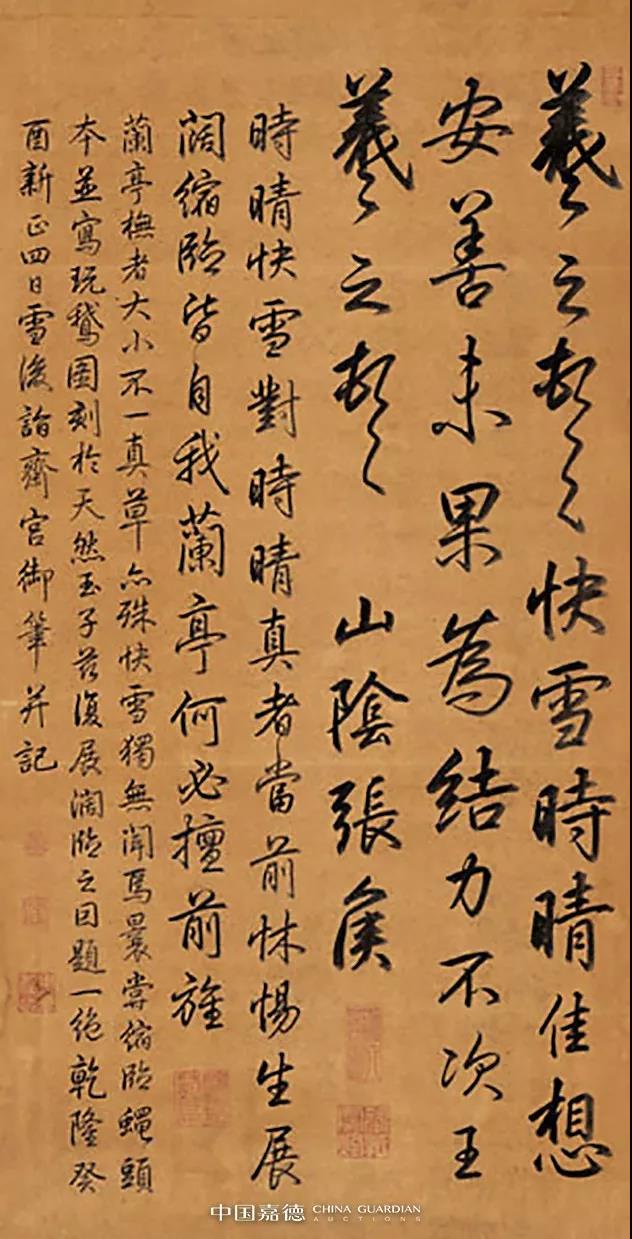 羲之頓〻快雪時晴佳想
安善未果為結力不次王
羲之頓〻 山陰張侯
時晴快雪對時晴真者當前怵惕生展
闊縮臨皆自我蘭亭何必擅前旌
蘭亭橅者大小不一真草亦殊快雪獨無聞焉曩嘗縮臨蠅頭
本並寫玩鵝圖刻於天然玉子茲復展濶臨之因題一絶乾隆癸
酉新正四日雪後詣齋宮御筆并記
中国嘉德 CHINA GUARDIAN
AUCTIONS